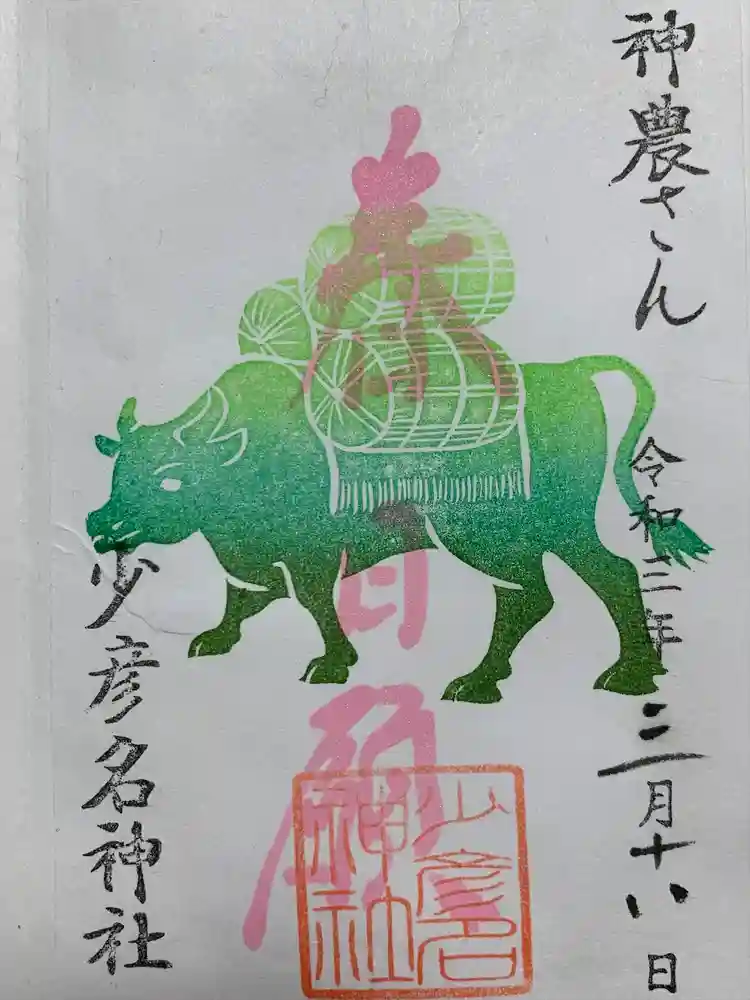 神農さん
令和三年三月十八日
奉
拝
願
少彦名神社
少彦名
神社